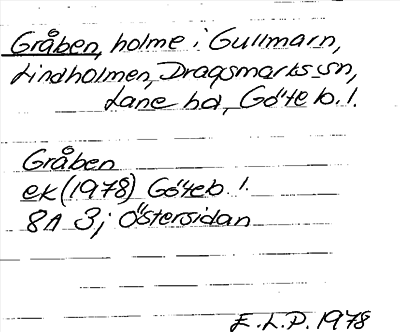 Gråben, holme i Gullmarn,
Lindholmen, Dragsmarks sn,
Lane hd, Göteb. l.
Gråben
ek (1978) Göteb. l.
8A 3j Östersidan
E.L.P. 1978